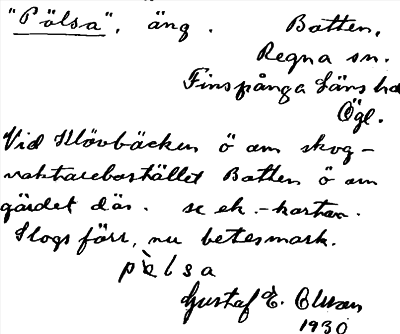 "Pölsa", äng. Botten,
Regna sn.
Finspånga Läns hd
Ögl.
Vid Klövbäcken ö om skog-
vaktarebostället Botten ö om
gärdet där. se ek.-kartan.
Slogs förr, nu betesmark.
pö̀lsa
Gustaf E. Olsson
1930